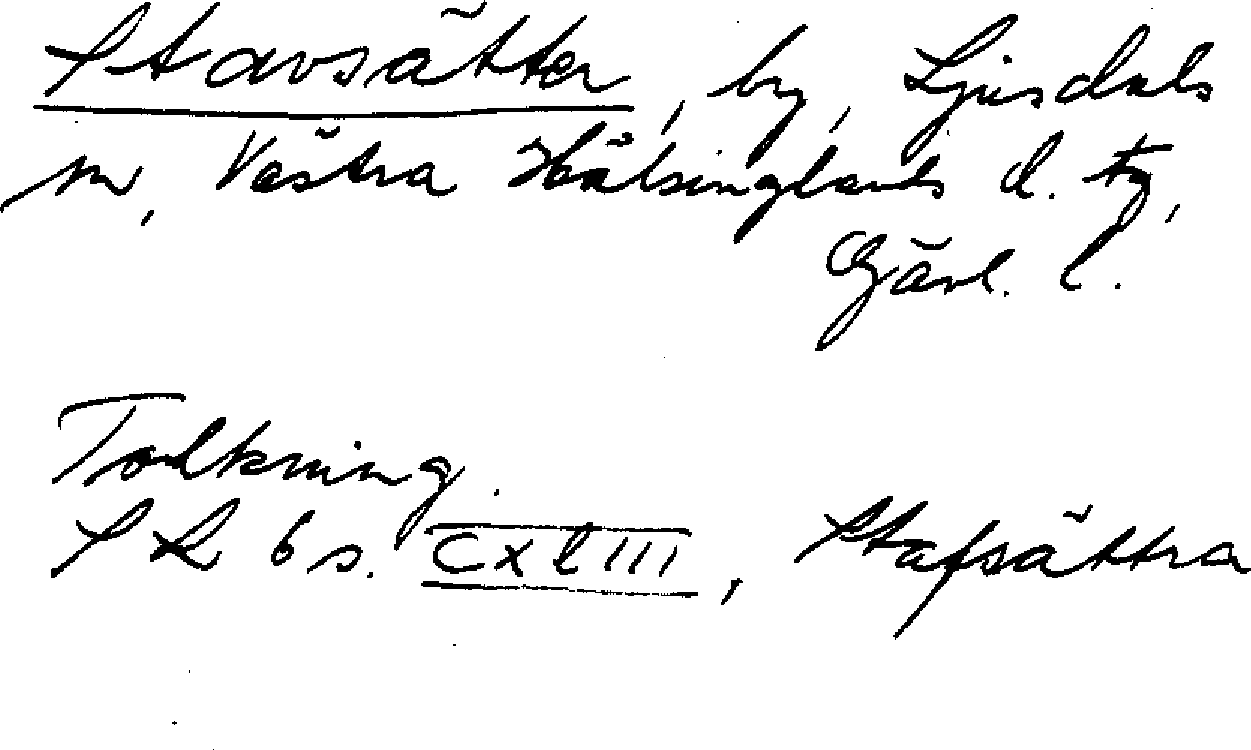 Stavsätter, by, Ljusdals
sn, Västra Hälsinglands d. tg,
Gävl. l.
Tolkning.
SR 6 s. CXLIII, Stafsättra